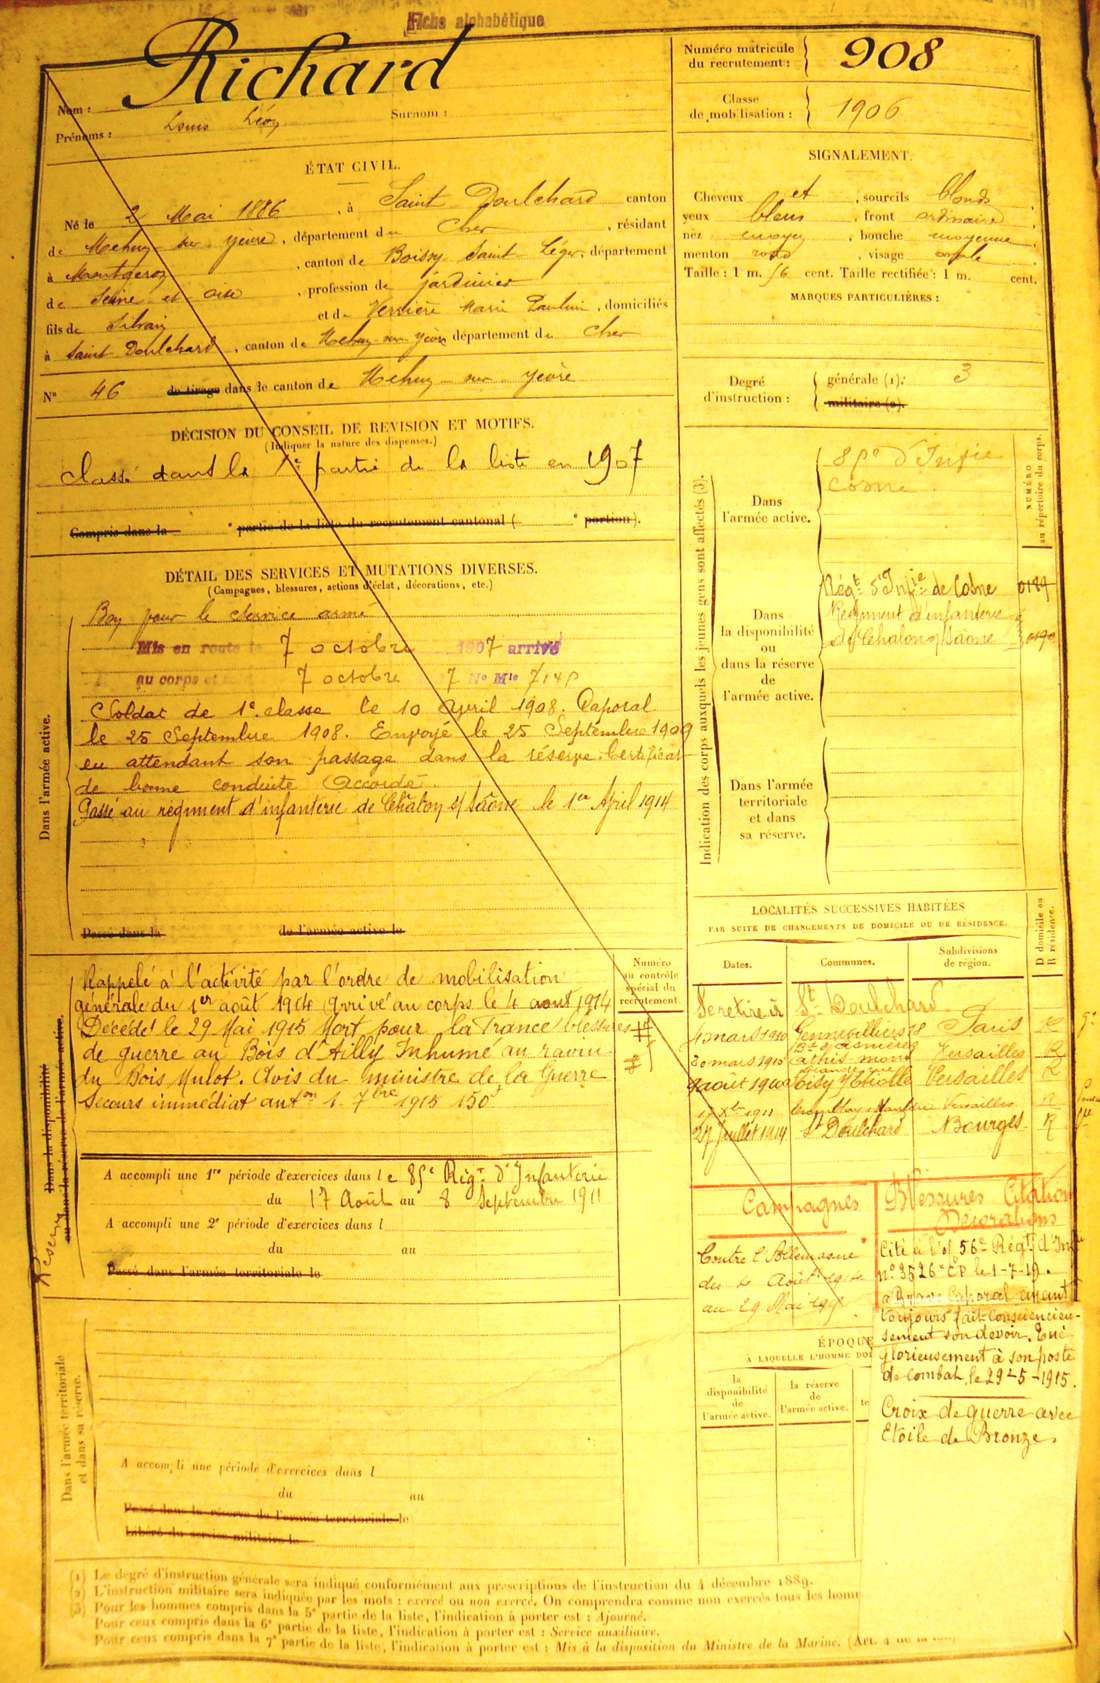 Fiche alphabétique
Nom : Richard
Prénoms : Louis Léon Surnom :
Numéro matricule du recrutement : 908
Classe de mobilisation : 1906
ÉTAT CIVIL.
Né le 2 Mai 1886, à Saint Doulchard canton
de Mehun sur yevre, département du Cher, résidant
à Montgeron, canton de Boissy Saint Léger, département
de Seine et oise, profession de jardinier
fils de Silvain et de Verrière Marie Pauline, domiciliés
à Saint Doulchard, canton de Mehun-sur-yèvre département du Cher
N° 46 de tirage dans le canton de Mehun sur yèvre
SIGNALEMENT.
Cheveux et, sourcils blonds,
yeux bleus, front ordinaire,
nez moyen, bouche moyenne,
menton rond, visage ovale
Taille : 1 m. 56 cent. Taille rectifiée : 1 m. cent.
MARQUES PARTICULIÈRES :
Degré d'instruction :
générale (1). 3
militaire (2).
DÉCISION DU CONSEIL DE REVISION ET MOTIFS.
(Indiquer la nature des dispenses.)
Classé dans la 1e partie de la liste en 1907
Compris dans la e partie de la liste du recrutement cantonal ( e portion).
DÉTAIL DES SERVICES ET MUTATIONS DIVERSES.
(Campagnes, blessures, actions d'éclat, décorations, etc.)
Dans l'armée active.
Bon pour le service armé
Mis en route le 7 octobre 1907 arrivé
au corps et 7 octobre 7 No Mle
Soldat de 1e classe le 10 avril 1908. Caporal
le 25 Septembre 1908. Envoyé le 25 Septembre 1909
en attendant son passage dans la réserve. Certificat
de bonne conduite Accordé.
Passé au régiment d'infanterie de Châlon s/ Saône le 1er April 1914
Passé dans la de l'armée active le
Indication des corps auxquels les jeunes gens sont affectés (3).
NUMÉRO au répertoire du corps.
Dans l'armée active.
85e d'Infie
Cosne
Dans la disponibilité ou dans la réserve de l'armée active.
Régt d'Infie de Cosne 0189
Régiment d'infanterie
de Chalon s/Saône 0190
Dans l'armée territoriale et dans sa réserve.
LOCALITÉS SUCCESSIVES HABITÉES
PAR SUITE DE CHANGEMENTS DE DOMICILE OU DE RÉSIDENCE.
Dates. Communes. Subdivisions de région. D domicile ou R résidence.
Se retire à St Doulchard
4 mars 1910 Gennevilliers Paris R
20 mars 1910 athis mons Versailles R
9 aout 1910 Versailles R
1911 Versailles R
27 Juillet 1914 St Doulchard Bourges R
Numéro au contrôle spécial du recrutement.
Dans la disponibilité ou dans la réserve de l'armée active.
Réserve
Rappelé à l'activité par l'ordre de mobilisation
générale du 1er août 1914 Arrivé au corps le 4 aout 1914
Décédé le 29 Mai 1915 Mort pour la France blessures
de guerre au Bois d'Ailly Inhumé au ravin
du Bois Mulot. Avis du ministre de la Guerre
Secours immédiat auton 1 7bre 1915 150f
A accompli une 1re période d'exercices dans le 85e Régt d'Infanterie
du 17 Août au 8 Septembre 1911
A accompli une 2e période d'exercices dans l
du au
Passé dans l'armée territoriale le
Campagnes
Contre l'Allemagne
du 4 Août 1914
au 29 Mai 1915
Blessures Citations
Décorations
Cité à l'o/ 56e Régt d'Infie
n° 3526 CP le 1-7-19.
a Brave Caporal ayant
toujours fait consciencieu-
sement son devoir. Tué
glorieusement à son poste
de combat, le 29-5-1915.
Croix de guerre avec
Etoile de Bronze.
ÉPOQUE
À LAQUELLE L'HOMME DOI
la disponibilité de l'armée active. la réserve de l'armée active. te
Dans l'armée territoriale et dans sa réserve.
A accompli une période d'exercices dans l
du au
Passé dans la réserve de l'armée territoriale le
Libéré du service militaire le
(1) Le degré d'instruction générale sera indiqué conformément aux prescriptions de l'instruction du 4 décembre 1889.
(2) L'instruction militaire sera indiquée par les mots : exercé ou non exercé. On comprendra comme non exercés tous les homm
(3) Pour les hommes compris dans la 5e partie de la liste, l'indication à porter est : Ajourné.
Pour ceux compris dans la 6e partie de la liste, l'indication à porter est : Service auxiliaire.
Pour ceux compris dans la 7e partie de la liste, l'indication à porter est : Mis à la disposition du Ministre de la Marine. (Art. 4